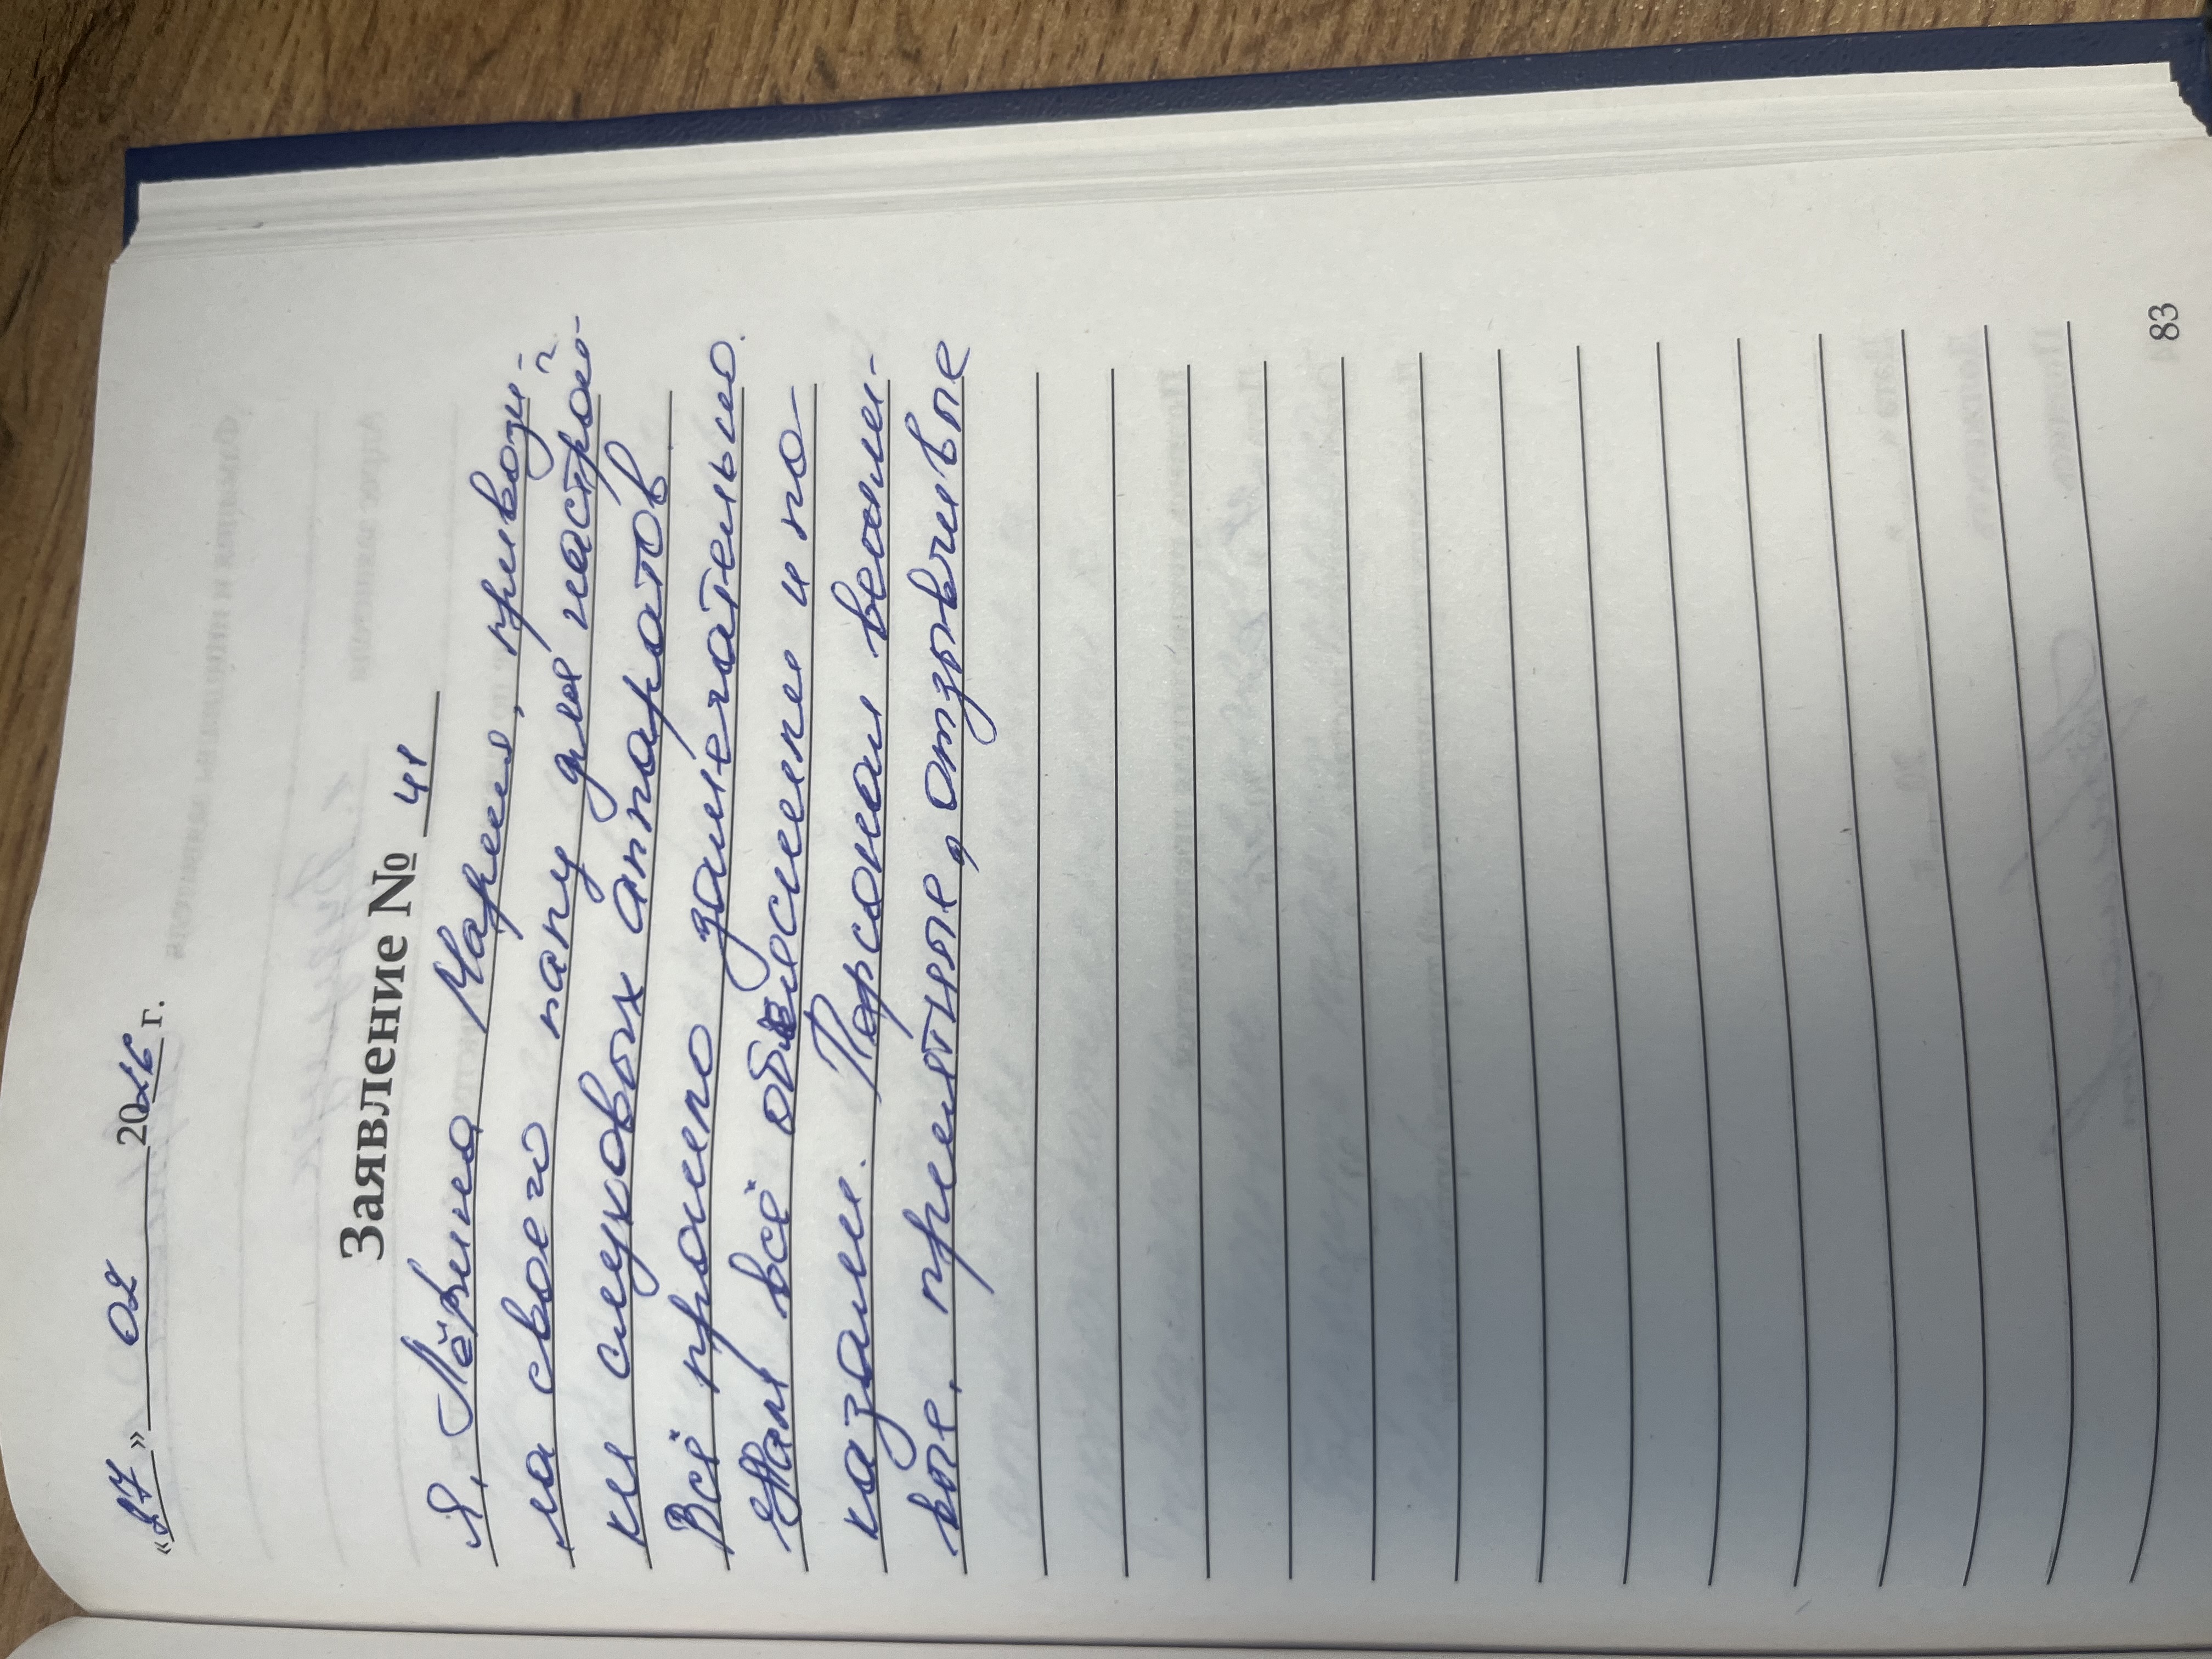 «27» 02 2026 г.
Заявление № 41
Я, Лёвина Мария, привози-
ла своего папу для настрой-
ки слуховых аппаратов
Всё прошло замечательно.
Нам всё объяснили и по-
казали. Персонал вежли-
вые, приятные, отзывчивые
83